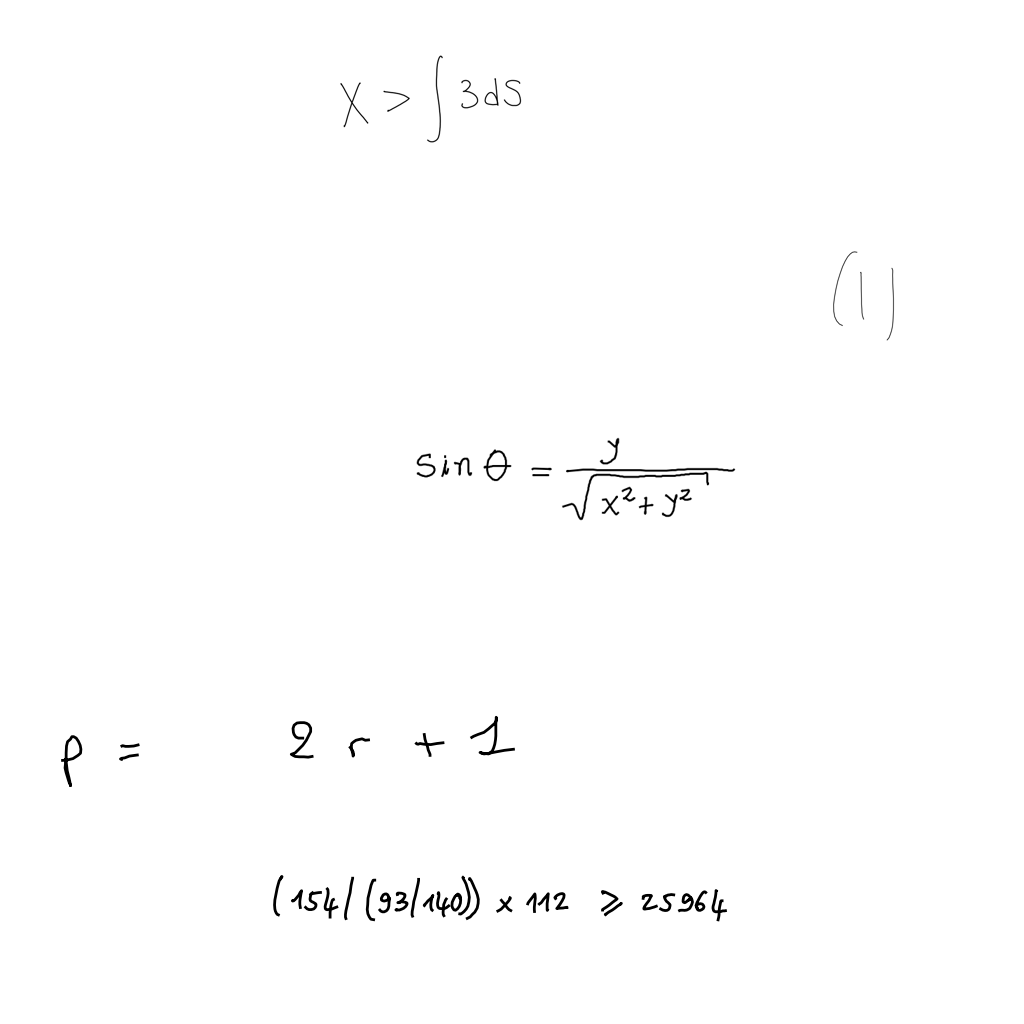 X > ∫ 3 d S
(1)
sin θ = y / √(x² + y²)
ρ = 2 r + 1
(154/(93/140)) × 112 ⩾ 25964